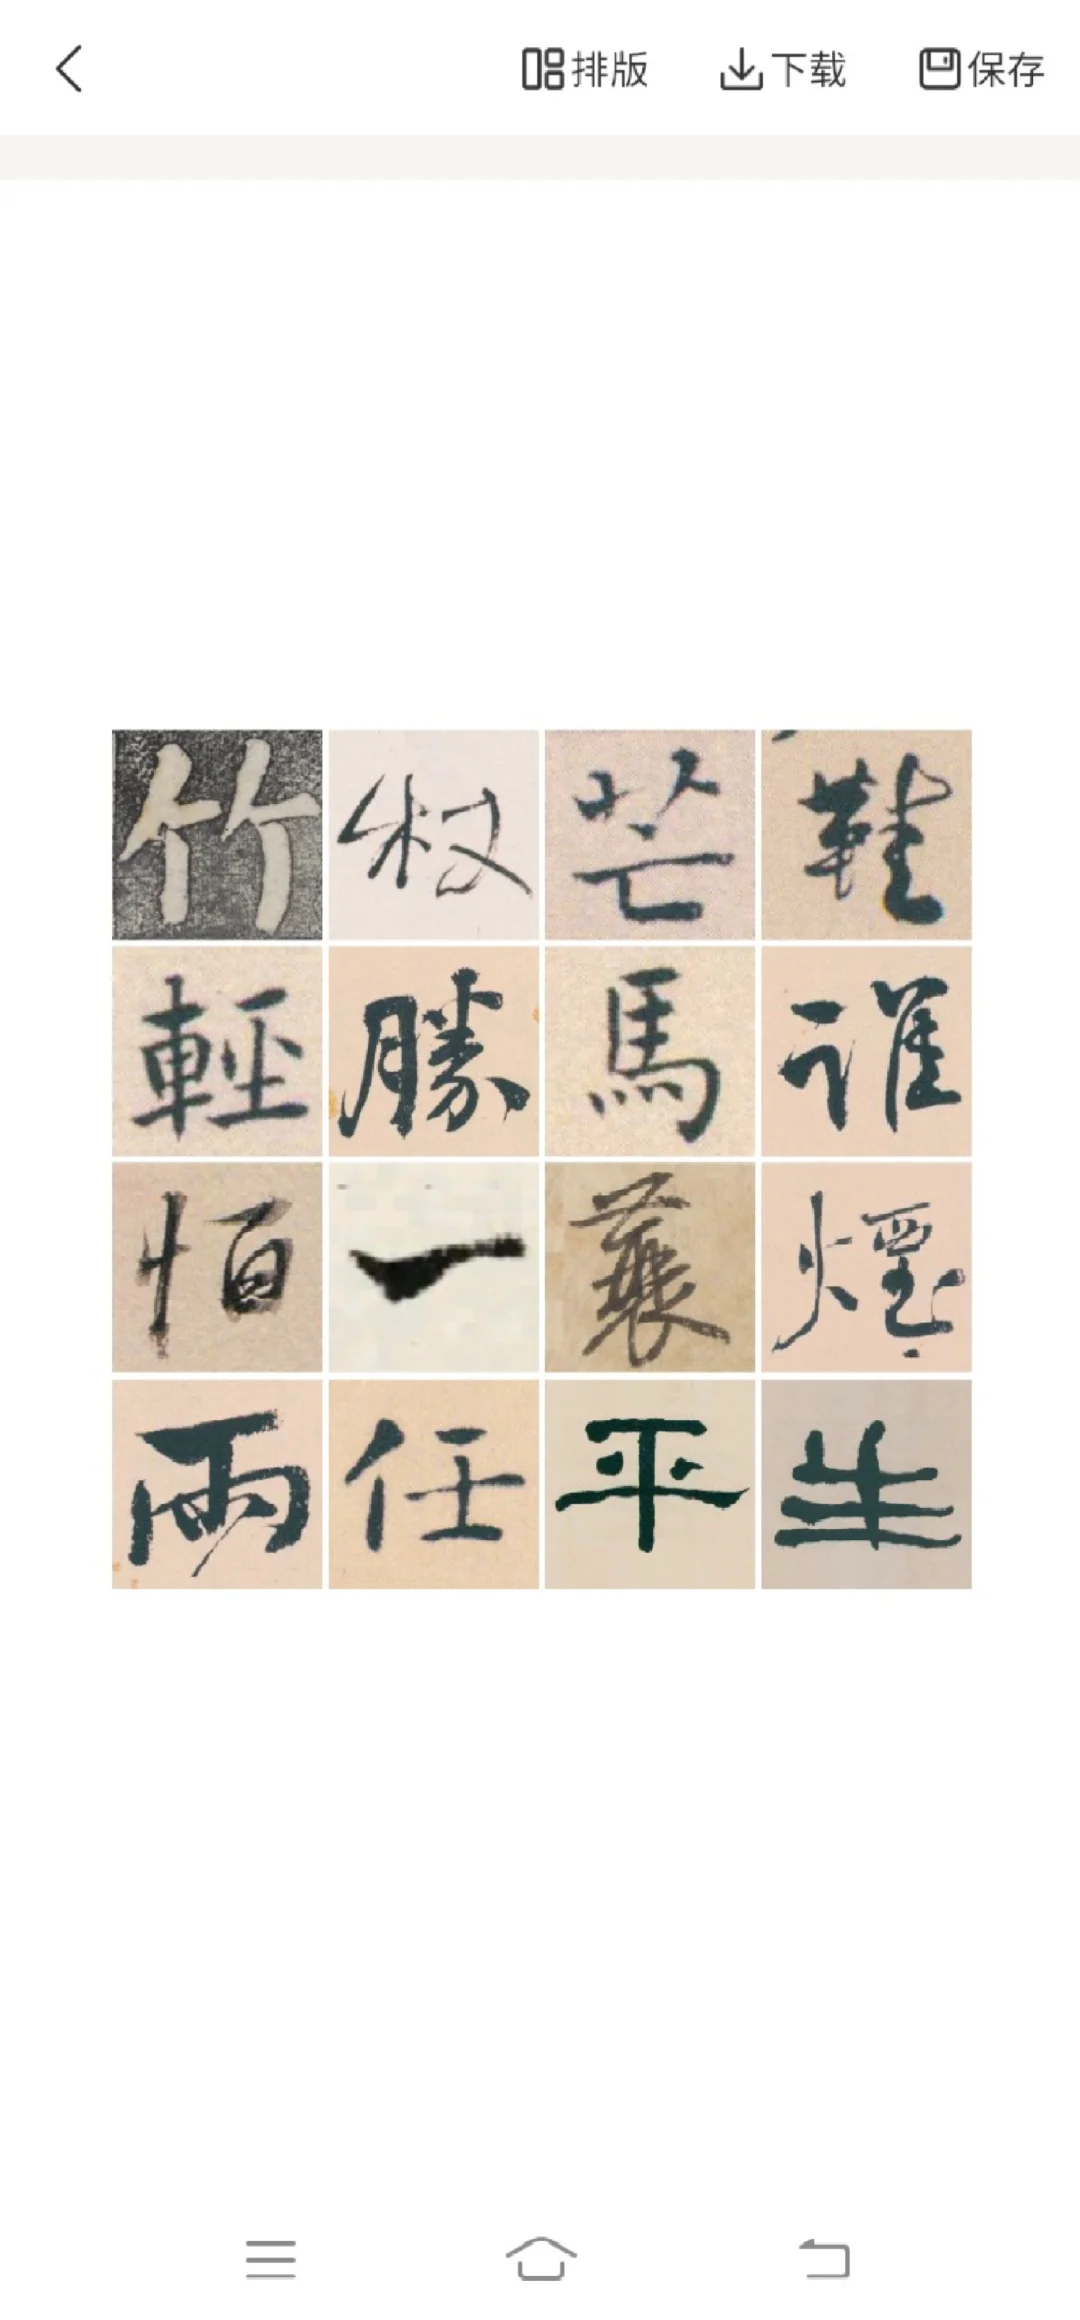 排版 下载 保存
竹杖芒鞋
輕勝馬誰
怕一蓑煙
雨任平生